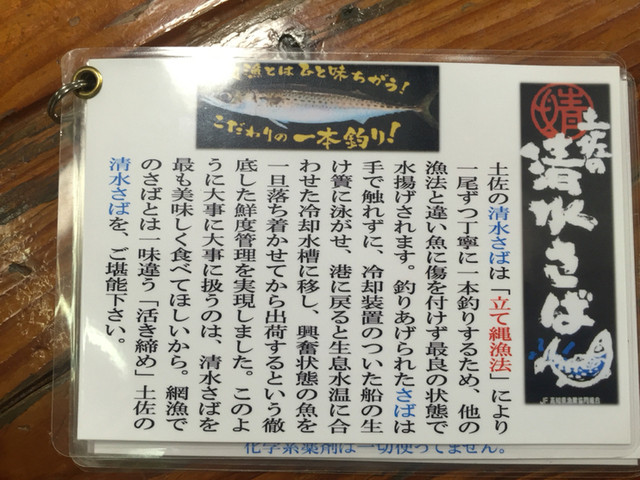 清
土佐の
清水さば
JF 高知県漁業協同組合
漁とはひと味ちがう!
こだわりの一本釣り!
土佐の清水さばは「立て縄漁法」により
一尾ずつ丁寧に一本釣りするため、他の
漁法と違い魚に傷を付けず最良の状態で
水揚げされます。釣りあげられたさばは
手で触れずに、冷却装置のついた船の生
け簀に泳がせ、港に戻ると生息水温に合
わせた冷却水槽に移し、興奮状態の魚を
一旦落ち着かせてから出荷するという徹
底した鮮度管理を実現しました。このよ
うに大事に大事に扱うのは、清水さばを
最も美味しく食べてほしいから。網漁で
のさばとは一味違う「活き締め」土佐の
清水さばを、ご堪能下さい。
化学系薬剤は一切使ってません。